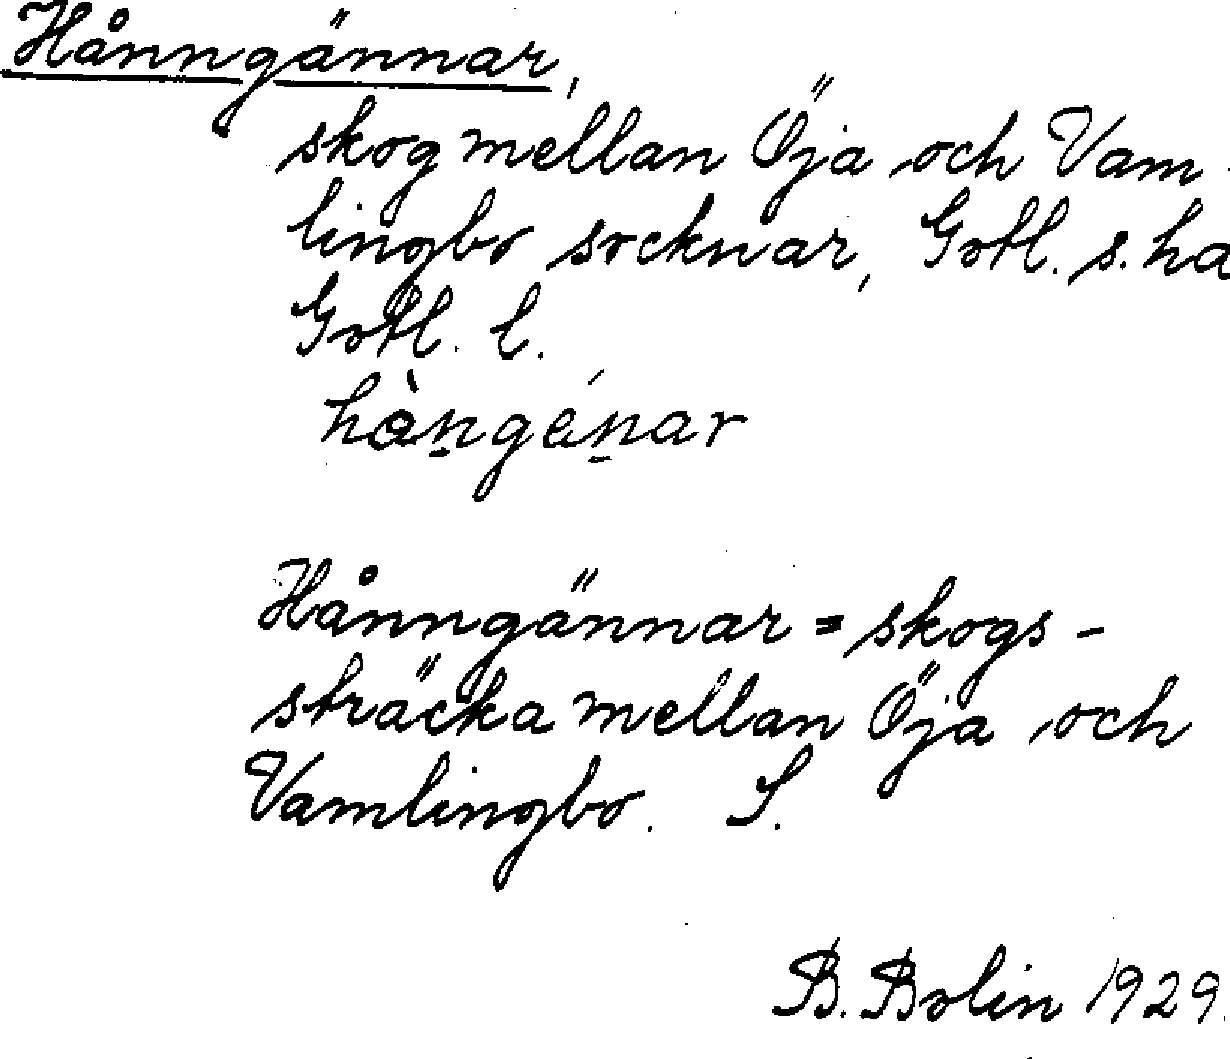 Hånngännar,
skog mellan Öja och Vam-
lingbo socknar, Gotl. s. ha
Gotl. l.
hàn̠gén̠ar
Hånngännar = skogs-
sträcka mellan Öja och
Vamlingbo. S.
B. Bolin 1929.